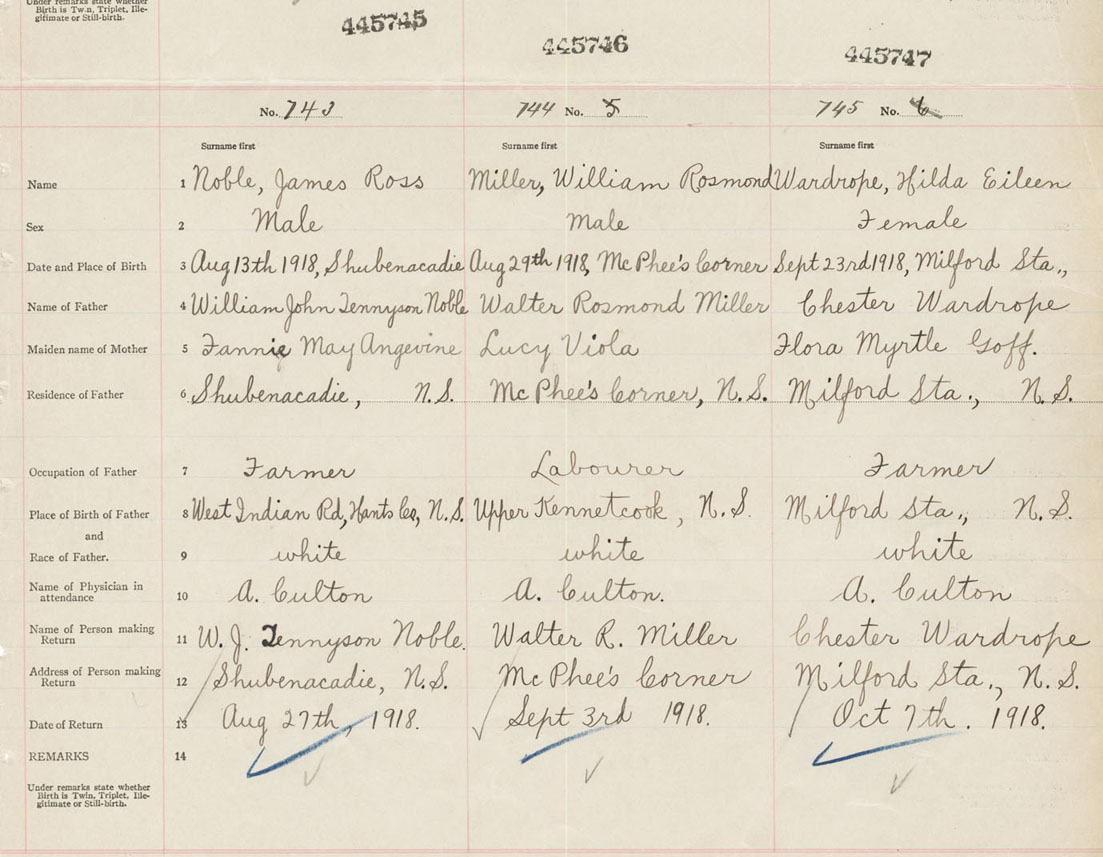 Under remarks state whether
Birth is Twin, Triplet, Ille-
gitimate or Still-birth.
445745 445746 445747
No. 743 744 No. 5 745 No. 6
Surname first Surname first Surname first
Name 1 Noble, James Ross Miller, William Rosmond Wardrope, Hilda Eileen
Sex 2 Male Male Female
Date and Place of Birth 3 Aug 13th 1918, Shubenacadie Aug 29th 1918, McPhee's Corner Sept 23rd 1918, Milford Sta.,
Name of Father 4 William John Tennyson Noble Walter Rosmond Miller Chester Wardrope
Maiden name of Mother 5 Fannie May Angevine Lucy Viola Flora Myrtle Goff.
Residence of Father 6 Shubenacadie, N.S. McPhee's Corner, N.S. Milford Sta., N.S.
Occupation of Father 7 Farmer Labourer Farmer
Place of Birth of Father 8 West Indian Rd, Hants Co, N.S. Upper Kennetcook, N.S. Milford Sta., N.S.
and
Race of Father. 9 white white white
Name of Physician in
attendance 10 A. Culton A. Culton. A. Culton
Name of Person making
Return 11 W. J. Tennyson Noble. Walter R. Miller Chester Wardrope
Address of Person making
Return 12 Shubenacadie, N.S. McPhee's Corner Milford Sta., N.S.
Date of Return 13 Aug 27th, 1918. Sept 3rd 1918. Oct 7th. 1918.
REMARKS 14
Under remarks state whether
Birth is Twin, Triplet, Ille-
gitimate or Still-birth.